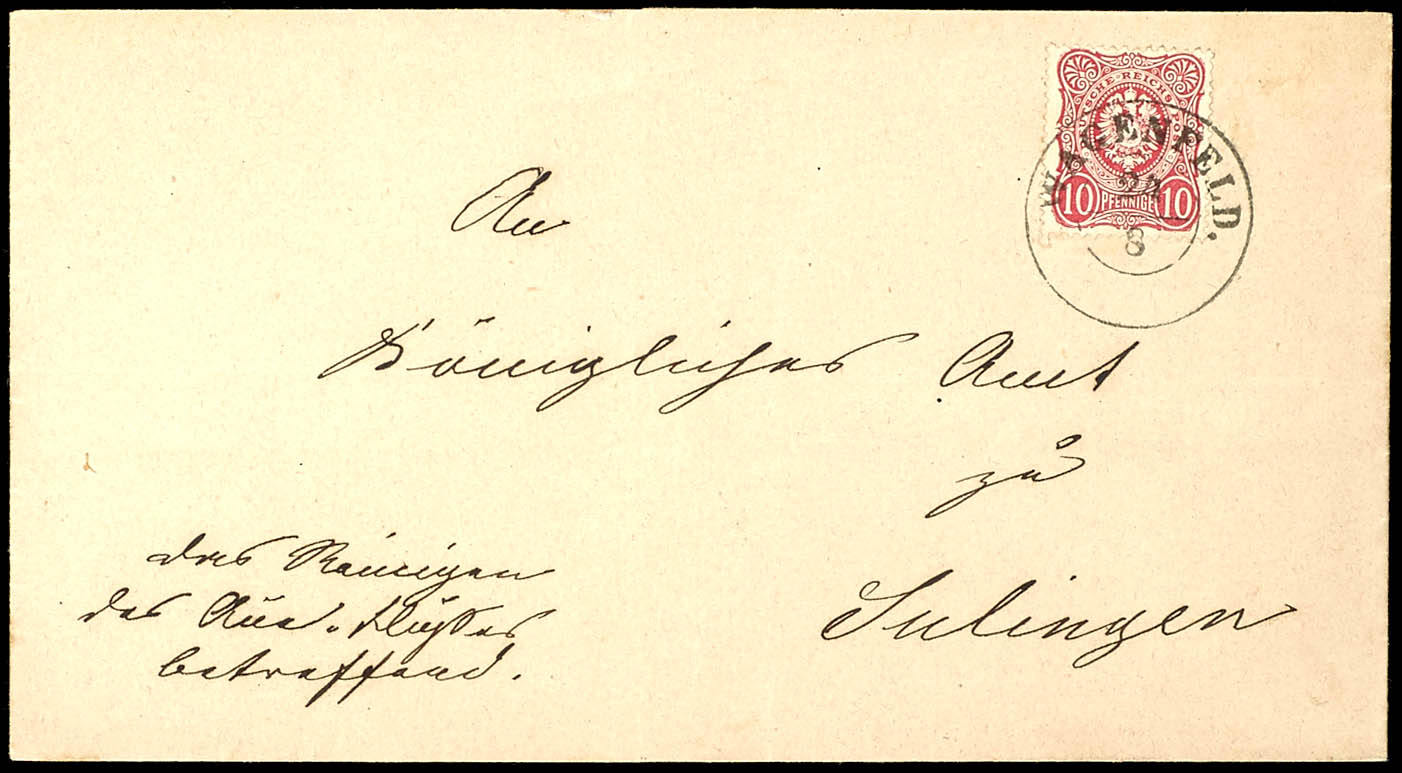 DEUTSCHE REICHS-POST
10 PFENNIGE 10
WAGENFELD.
8
An
Königliches Amt
zu
Sulingen
das Reinigen
des Aue-Flußes
betreffend.